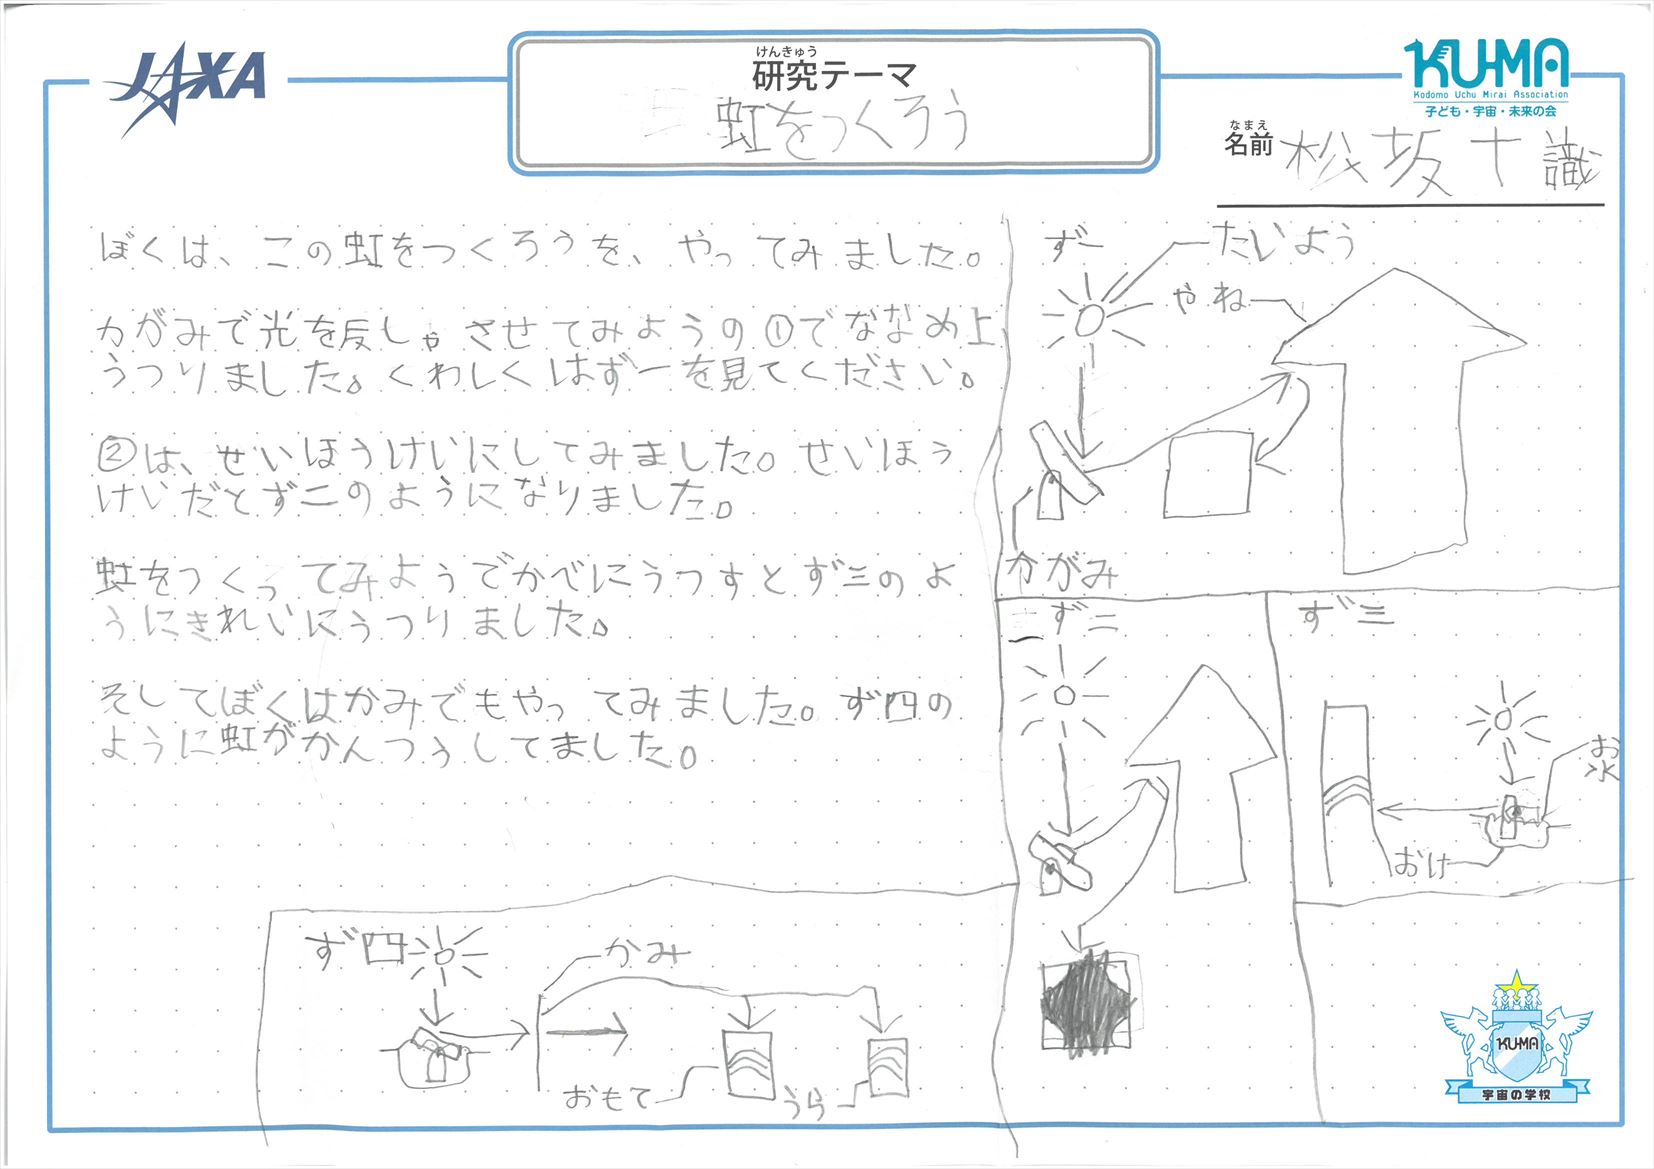 JAXA
けんきゅう
研究テーマ
虹をつくろう
KU-MA
Kodomo Uchu Mirai Association
子ども・宇宙・未来の会
なまえ
名前 松坂十識
ぼくは、この虹をつくろうを、やってみました。
かがみで光を反しゃさせてみようの①でななめ上
うつりました。くわしくはず一を見てください。
②は、せいほうけいにしてみました。せいほう
けいだとず二のようになりました。
虹をつくってみようでかべにうつすとず三のよ
うにきれいにうつりました。
そしてぼくはかみでもやってみました。ず四の
ように虹がかんつうしてました。
ず一
たいよう
やね
かがみ
ず二
ず三
お水
おけ
ず四
かみ
おもて
うら
KU-MA
宇宙の学校